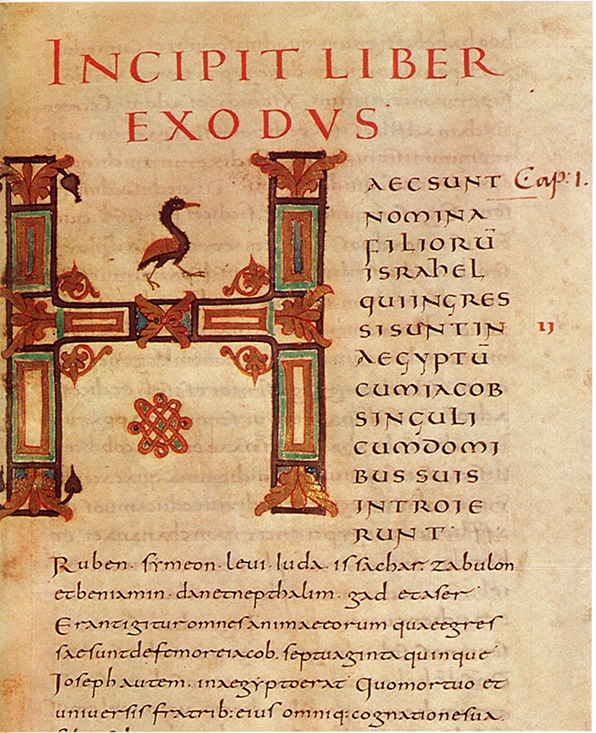 INCIPIT LIBER
EXODVS
HAEC SUNT Cap: 1.
NOMINA
FILIORŪ
ISRAHEL
QUI INGRES
SI SUNT IN IJ
AEGYPTŪ
CUM IACOB
SINGULI
CUM DOMI
BUS SUIS
INTROIE
RUNT·
Ruben· symeon· leui· iuda· issachar· zabulon
et beniamin· dan et nepthalim· gad et aser
Erant igitur omnes animae eorum quae egres
sae sunt de femore iacob· septuaginta quinque
Ioseph autem· in aegypto erat Quo mortuo et
universis fratrib: eius omniq: cognatione sua·